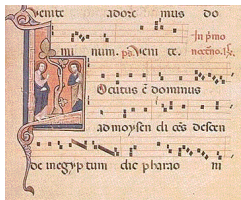 Venite adore mus do
mi num. ps. Venite.
In p̄mo
nocturno. ℟.
Locutus ē dominus
ad moysen di cēs descen
de in egyptum dic pharao ni